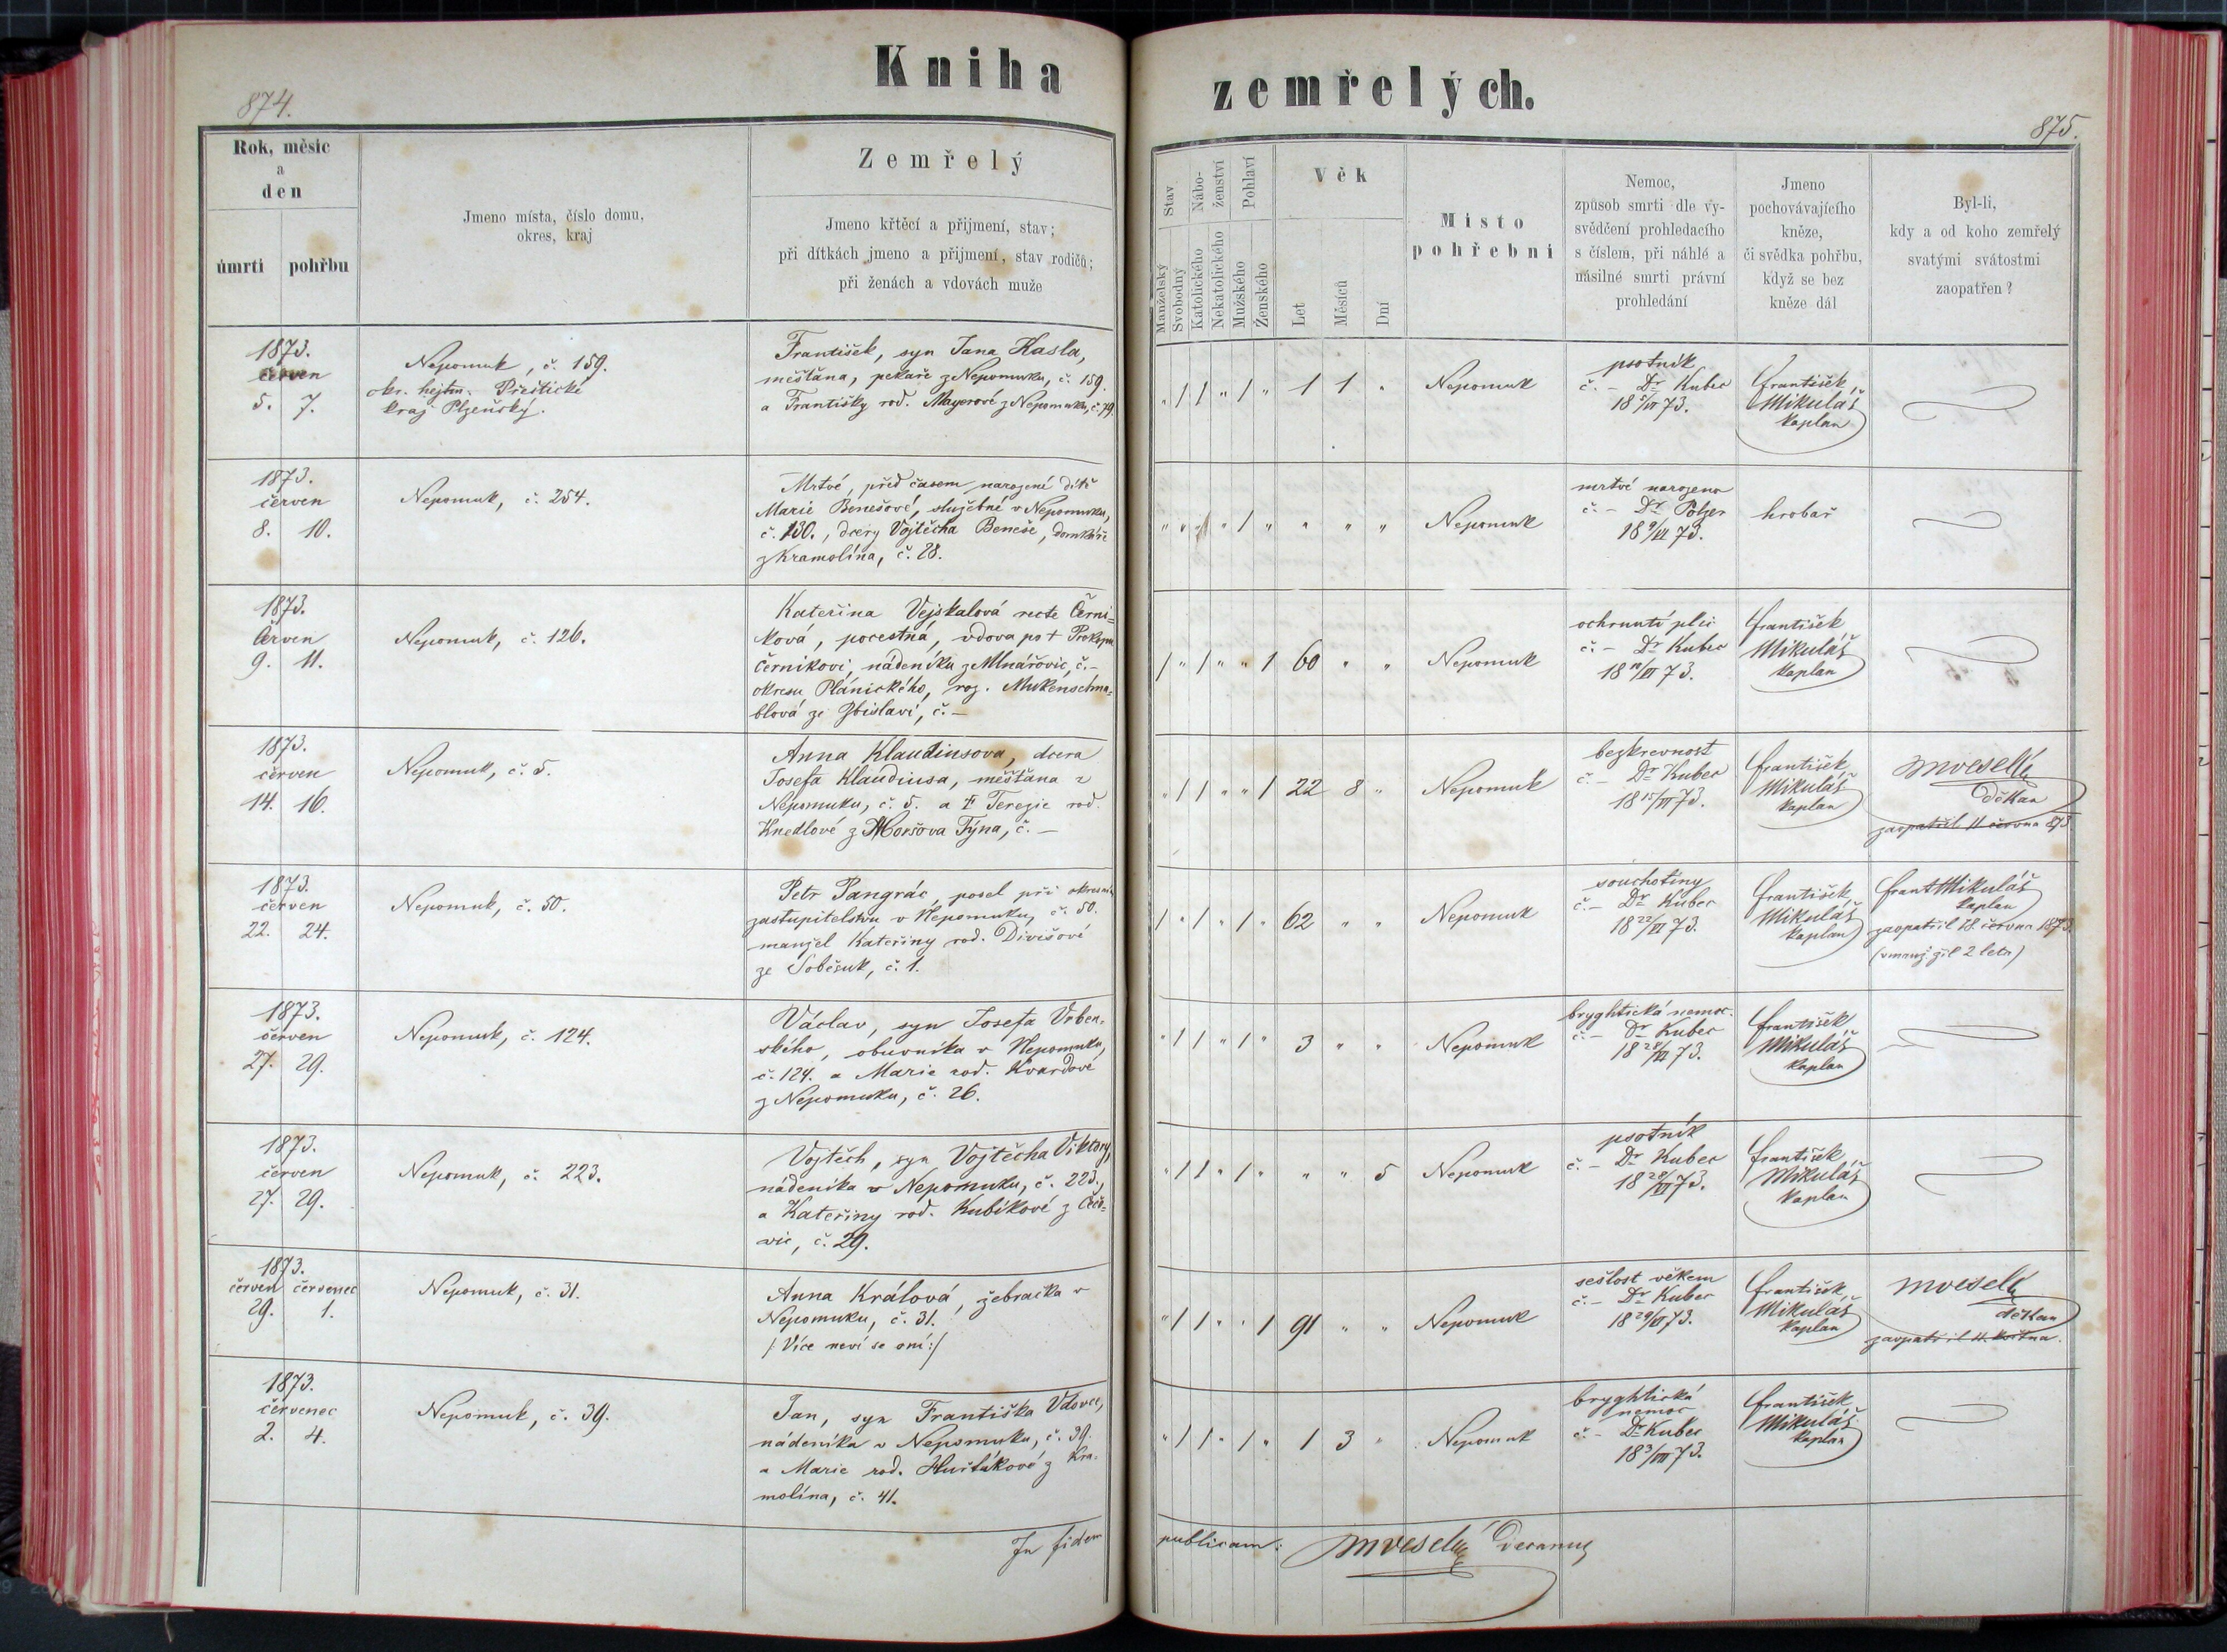 Kniha zemřelých.
874.
875.
Rok, měsíc
a
den
úmrtí pohřbu
Jmeno místa, číslo domu,
okres, kraj
Zemřelý
Jmeno křtěcí a přijmení, stav;
při dítkách jmeno a přijmení, stav rodičů;
při ženách a vdovách muže
Stav
Manželský
Svobodný
Nábo-
ženství
Katolického
Nekatolického
Pohlaví
Mužského
Ženského
Věk
Let
Měsíců
Dní
Místo
pohřební
Nemoc,
způsob smrti dle vy-
svědčení prohledacího
s číslem, při náhlé a
násilné smrti právní
prohledání
Jmeno
pochovávajícího
kněze,
či svědka pohřbu,
když se bez
kněze dál
Byl-li,
kdy a od koho zemřelý
svatými svátostmi
zaopatřen?
1873.
červen
5. 7.
Nepomuk, č. 159.
okr. hejtm. Přeštické
kraj Plzeňský.
František, syn Jana Kasla,
měšťana, pekaře z Nepomuku, č. 159.
a Františky rod. Mayerové z Nepomuku, č. 79.
" / / " / " 1 1 "
Nepomuk
psotník
č. – Dr Kubec
18 5/VI 73.
František
Mikuláš
kaplan
1873.
červen
8. 10.
Nepomuk, č. 254.
Mrtvé, před časem narozené dítě
Marie Benešové, služebné v Nepomuku,
č. 130., dcery Vojtěcha Beneše, domkáře
z Kramolína, č. 28.
Nepomuk
mrtvé narozeno
č. – Dr Polzer
18 9/VI 73.
hrobař
1873.
červen
9. 11.
Nepomuk, č. 126.
Kateřina Vejskalová recte Černi=
ková, pocestná, vdova po + Prokopu
Černikovi, nádeníku z Mlnářovic, č.–
okresu Plánického, roz. Mukenschna=
blová ze Zbislavi, č. –
/ " / " " 1 60 " "
Nepomuk
ochrnutí plic
č. – Dr Kubec
18 10/VI 73.
František
Mikuláš
kaplan
1873.
červen
14. 16.
Nepomuk, č. 5.
Anna Klaudiusova, dcera
Josefa Klaudiusa, měšťana z
Nepomuku, č. 5. a + Terezie rod.
Knedlové z Horšova Týna, č. –
" / / " " / 22 8 "
Nepomuk
bezkrevnost
č. – Dr Kubec
18 15/VI 73.
František
Mikuláš
kaplan
děkan
zaopatřil 11 června 873
1873.
červen
22. 24.
Nepomuk, č. 50.
Petr Pangrác, posel při okresním
zastupitelstvu v Nepomuku, č. 50.
manžel Kateřiny rod. Divišové
ze Soběsuk, č. 1.
/ " / " / " 62 " "
Nepomuk
souchotiny
č. – Dr Kubec
18 22/VI 73.
František
Mikuláš
kaplan
Frant Mikuláš
kaplan
zaopatřil 18. června 1873.
(v manž. žil 2 leta)
1873.
červen
27. 29.
Nepomuk, č. 124.
Václav, syn Josefa Vrben-
ského, obuvníka v Nepomuku,
č. 124. a Marie rod. Kvardové
z Nepomuku, č. 26.
" / / " / " 3 " "
Nepomuk
bryghtická nemoc.
č. – Dr Kubec
18 28/VI 73.
František
Mikuláš
kaplan
1873.
červen
27. 29.
Nepomuk, č. 223.
Vojtěch, syn Vojtěcha Viktory,
nádeníka v Nepomuku, č. 223.,
a Kateřiny rod. Kubíkové z Čečo=
vic, č. 29.
" / / " / " " " 5
Nepomuk
psotník
č. – Dr Kubec
18 28/VI 73.
František
Mikuláš
kaplan
1873.
červen červenec
29. 1.
Nepomuk, č. 31.
Anna Králová, žebračka v
Nepomuku, č. 31.
/: Více neví se o ní :/
" / / " " 1 91 " "
Nepomuk
sešlost věkem
č. – Dr Kubec
18 29/VI 73.
František
Mikuláš
kaplan
děkan
zaopatřil 11. května.
1873.
červenec
2. 4.
Nepomuk, č. 39.
Jan, syn Františka Vdovce,
nádeníka v Nepomuku, č. 39.
a Marie rod. Hurtákové z Kra-
molína, č. 41.
" / / " / " 1 3 "
Nepomuk
bryghtická
nemoc
č. – Dr Kubec
18 3/VII 73.
František
Mikuláš
kaplan
In fidem publicam: Decanus